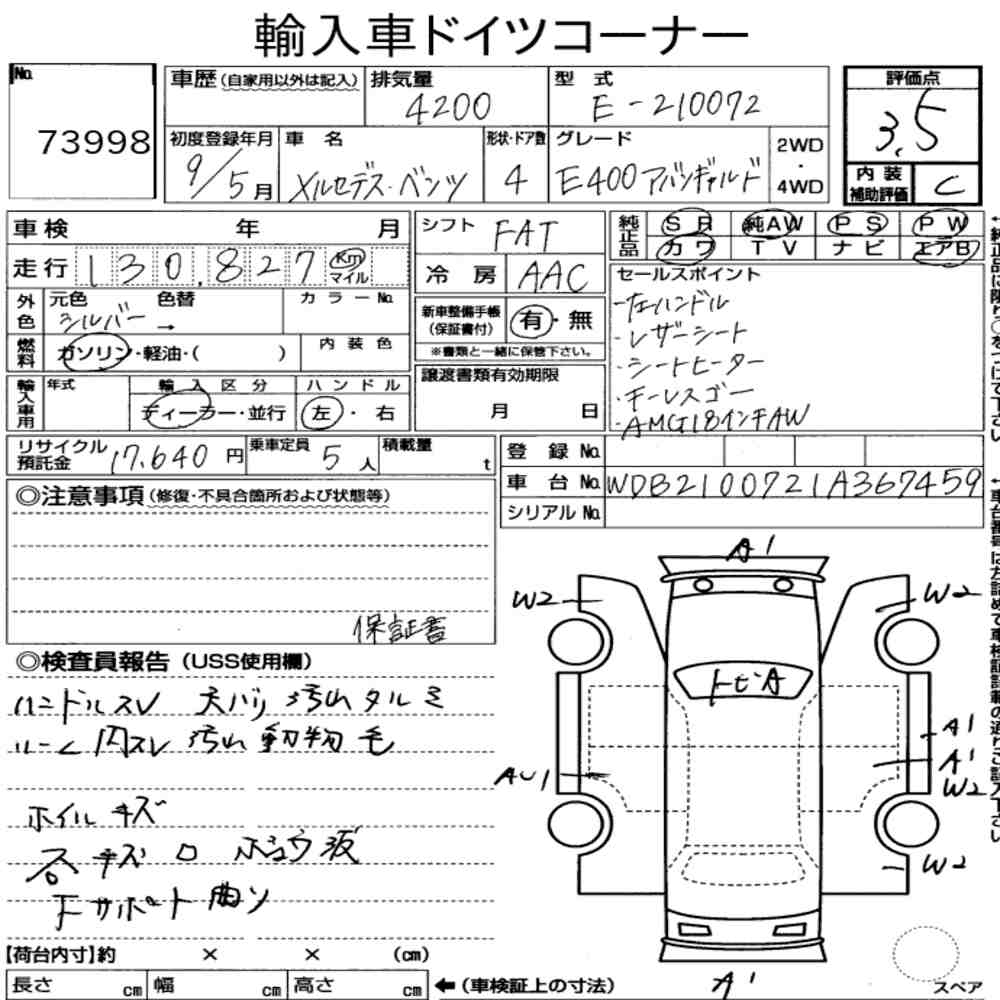 輸入車ドイツコーナー
No. 73998
車歴(自家用以外は記入)
排気量 4200
型式 E-210072
評価点 3.5
初度登録年月 9/5月
車名 メルセデス・ベンツ
形状・ドア数 4
グレード E400アバンギャルド
2WD・4WD
内装補助評価 C
車検 年 月
走行 130,827 Km マイル
シフト FAT
冷房 AAC
純正品 SR 純AW PS PW
カワ TV ナビ エアB
外色 元色 シルバー 色替 → カラーNo.
燃料 ガソリン・軽油・( )
内装色
新車整備手帳(保証書付) 有・無
※書類と一緒に保管下さい。
セールスポイント
・左ハンドル
・レザーシート
・シートヒーター
・キーレスゴー
・AMG18インチAW
輸入車用 年式
輸入区分 ディーラー・並行
ハンドル 左・右
譲渡書類有効期限
月 日
リサイクル預託金 17,640円
乗車定員 5人
積載量 t
登録No.
車台No. WDB2100721A367459
シリアルNo.
◎注意事項(修復・不具合箇所および状態等)
保証書
◎検査員報告(USS使用欄)
ハンドルスレ 天バリ汚レタルミ
ルーム内スレ 汚レ 動物毛
ホイルキズ
キズ
下サポート曲リ
A1
W2
W2
トビA
A1
A1
W2
AU1
W2
A1
スペア
【荷台内寸】約 × × (cm)
長さ cm 幅 cm 高さ cm
←(車検証上の寸法)